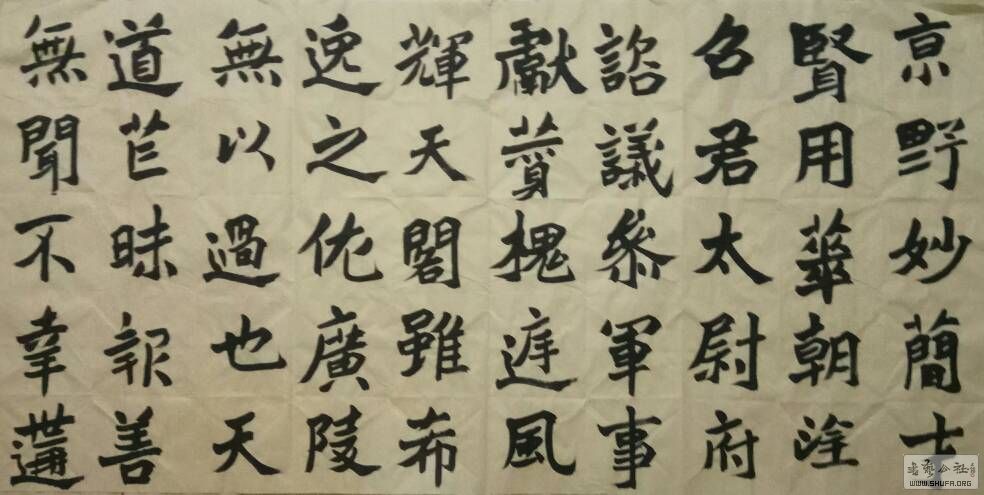 京野妙簡士
賢用華朝
召君太尉府
諮議參軍事
獻贊槐庭風
輝天閣雖希
逸之佐廣陵
無以過也天
道茫昧報善
無聞不幸遘
书艺公社
WWW.SHUFA.ORG